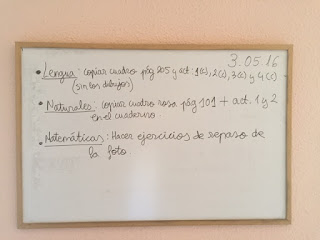 3.05.16
• Lengua: copiar cuadro pág 205 y act: 1(c), 2(c), 3(c) y 4(c)
(sin los dibujos)
• Naturales: copiar cuadro rosa pág 101 + act. 1 y 2
en el cuaderno.
• Matemáticas: Hacer ejercicios de repaso de
la foto.